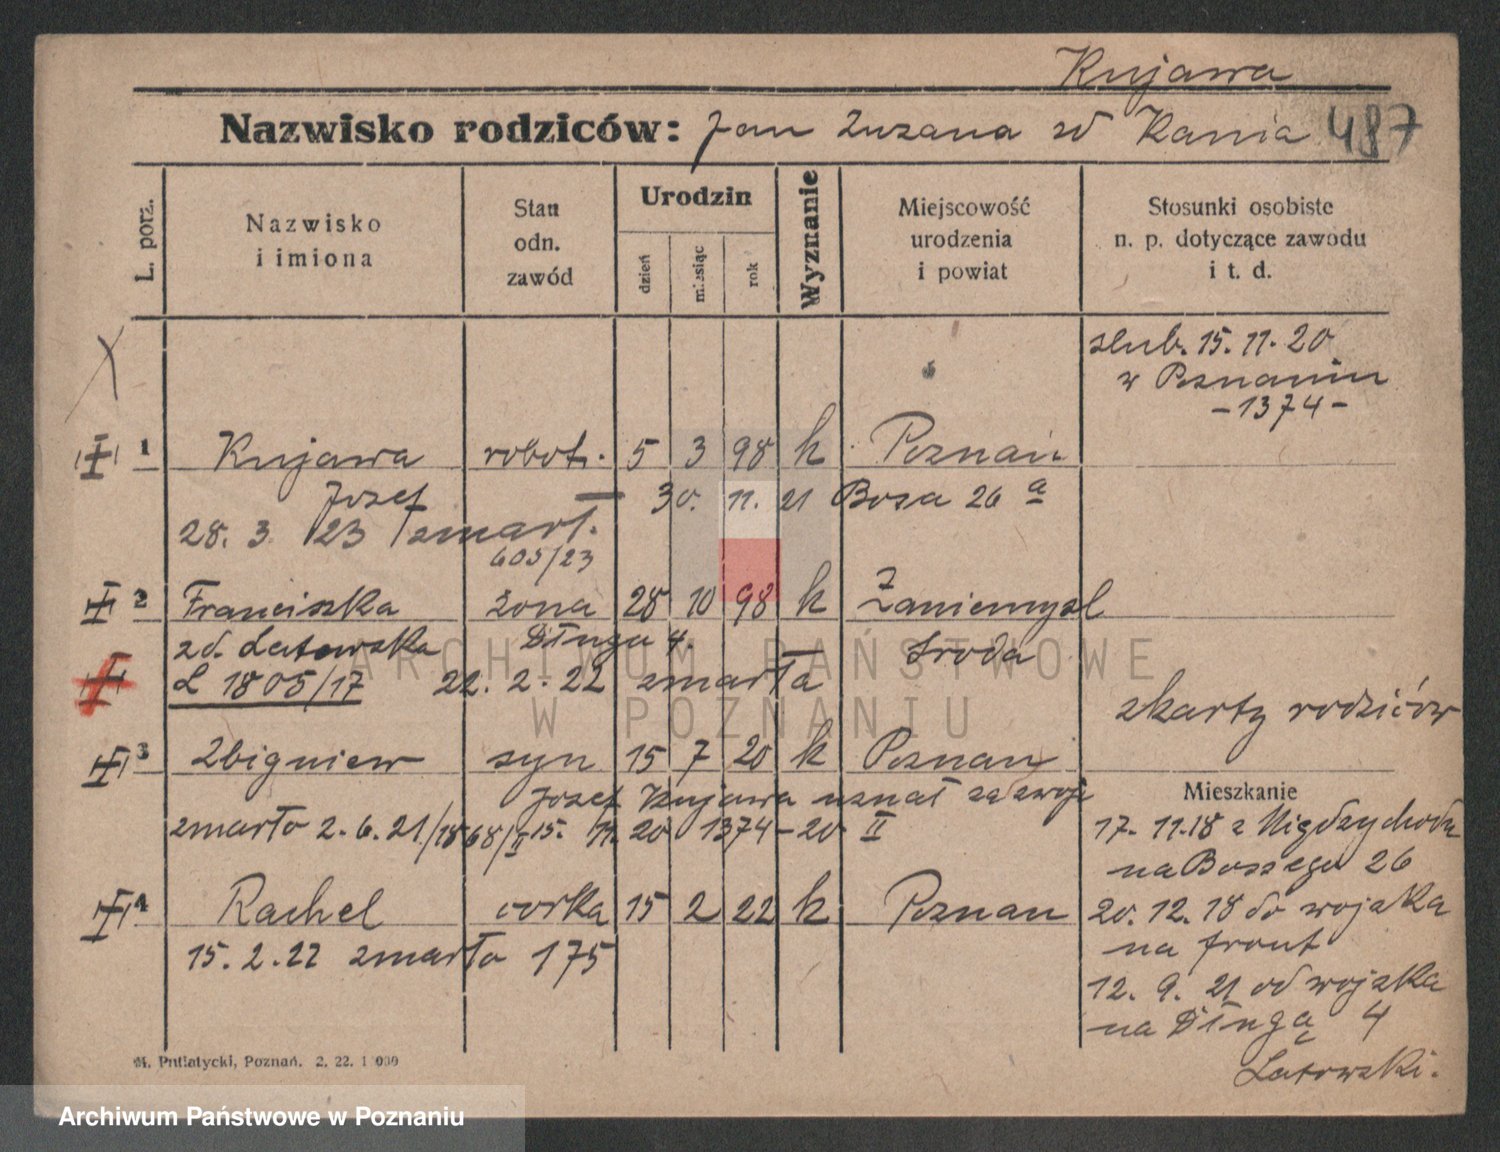 Kujawa
Nazwisko rodziców: Jan Zuzana zd Kania 487
L. porz.
Nazwisko i imiona
Stan odn. zawód
Urodzin
dzień
miesiąc
rok
Wyznanie
Miejscowość urodzenia i powiat
Stosunki osobiste n. p. dotyczące zawodu i t. d.
slub. 15. 11. 20
w Poznaniu
-1374-
1 Kujawa robot. 5 3 98 k Poznań
Josef 30. 11. 21 Bosa 26 a
28. 3. 23 zmarł.
605/23
2 Franciszka zona 28 10 98 k Zaniemysl
zd. Latowska Długa 4. Sroda
L 1805/17 22. 2. 22 zmarła
zkarty rodziców
3 Zbigniew syn 15 7 20 k Poznan
Josef Kujawa uznał za swoje
zmarło 2. 6. 21./1868/II 15. 11. 20 1374-20 II
Mieszkanie
17. 11.18 z Międzychodu
na Bossego 26
4 Rachel corka 15 2 22 k Poznan
20. 12. 18 do wojska
na front
15. 2. 22 zmarło 175
12. 9. 21 od wojska
na Długą 4
Latowski.
M. Putiatycki, Poznań. 2. 22. 1 000
ARCHIWUM PAŃSTWOWE
W POZNANIU
Archiwum Państwowe w Poznaniu